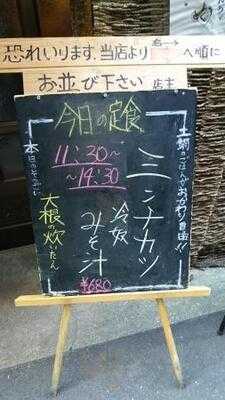 恐れいります、当店より
へ順に
お並び下さい 店主
今日の定食
11:30〜
〜14:30
ミンチカツ
冷奴
みそ汁
¥680
土鍋ごはんおかわり自由!!
大根の炊いたん